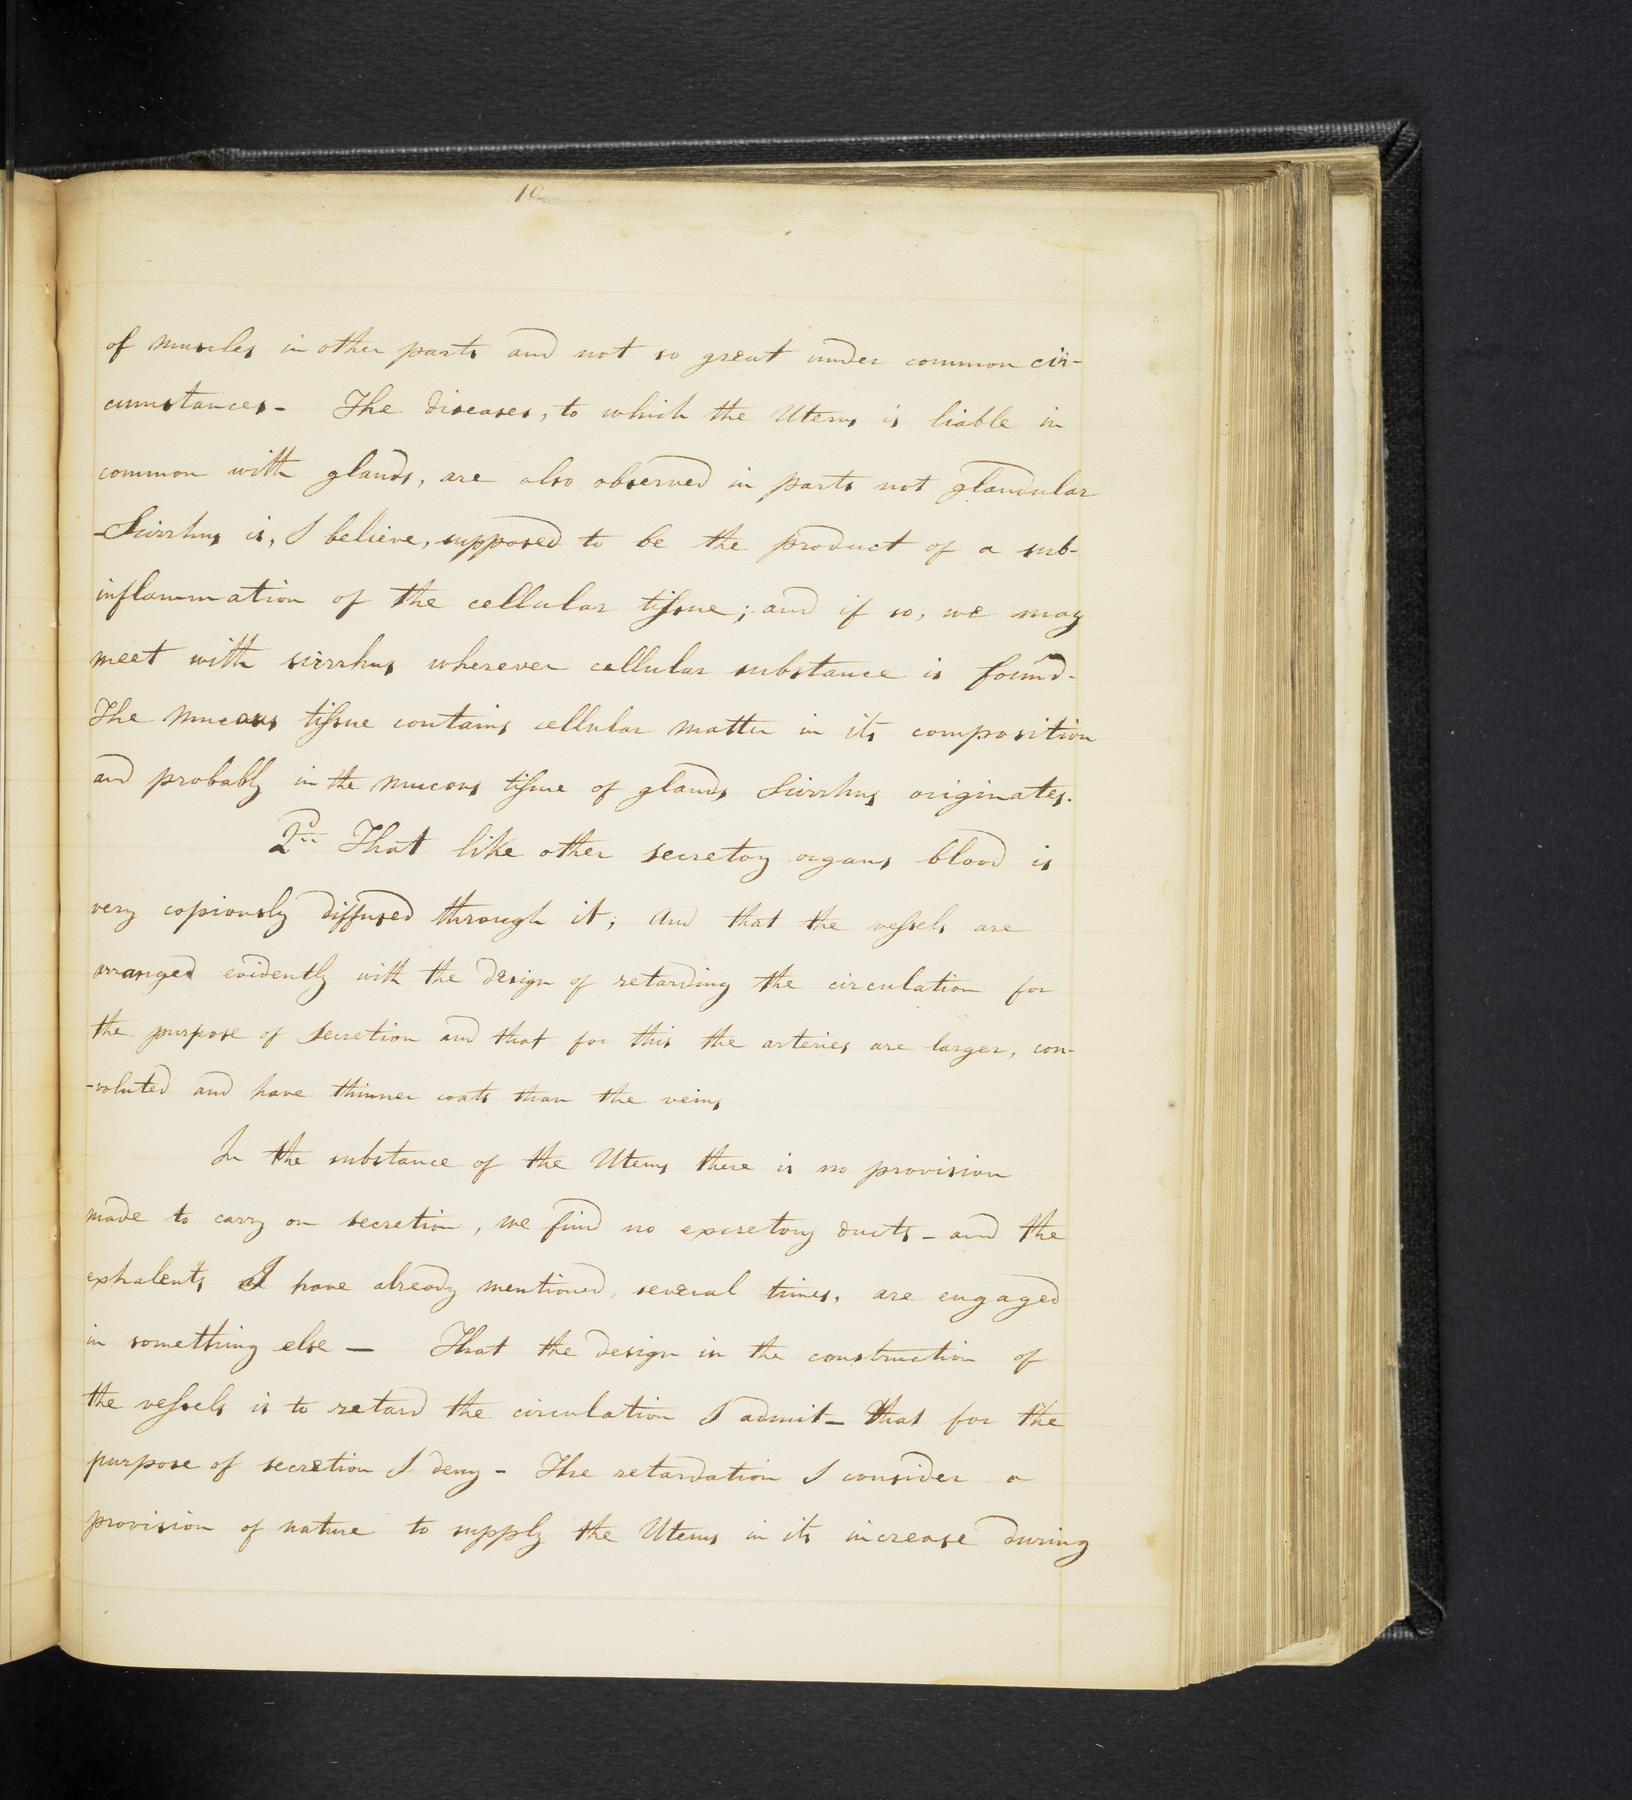 10
of muscles in other parts and not so great under common cir-
cumstances - The diseases, to which the Uterus is liable in
common with glands, are also observed in parts not glandular
-Scirrhus is, I believe, supposed to be the product of a sub-
inflammation of the cellular tissue; and if so, we may
meet with scirrhus wherever cellular substance is found-
The mucous tissue contains cellular matter in its composition
and probably in the mucous tissue of glands Scirrhus originates.
2nd That like other secretory organs blood is
very copiously diffused through it; and that the vessels are
arranged evidently with the design of retarding the circulation for
the purpose of Secretion and that for this the arteries are larger, con-
-voluted and have thinner coats than the veins
In the substance of the Uterus there is no provision
made to carry on secretion, we find no excretory ducts - and the
exhalents I have already mentioned, several times, are engaged
in something else — That the design in the construction of
the vessels is to retard the circulation I admit - that for the
purpose of secretion I deny - The retardation I consider a
provision of nature to supply the Uterus in its increase during